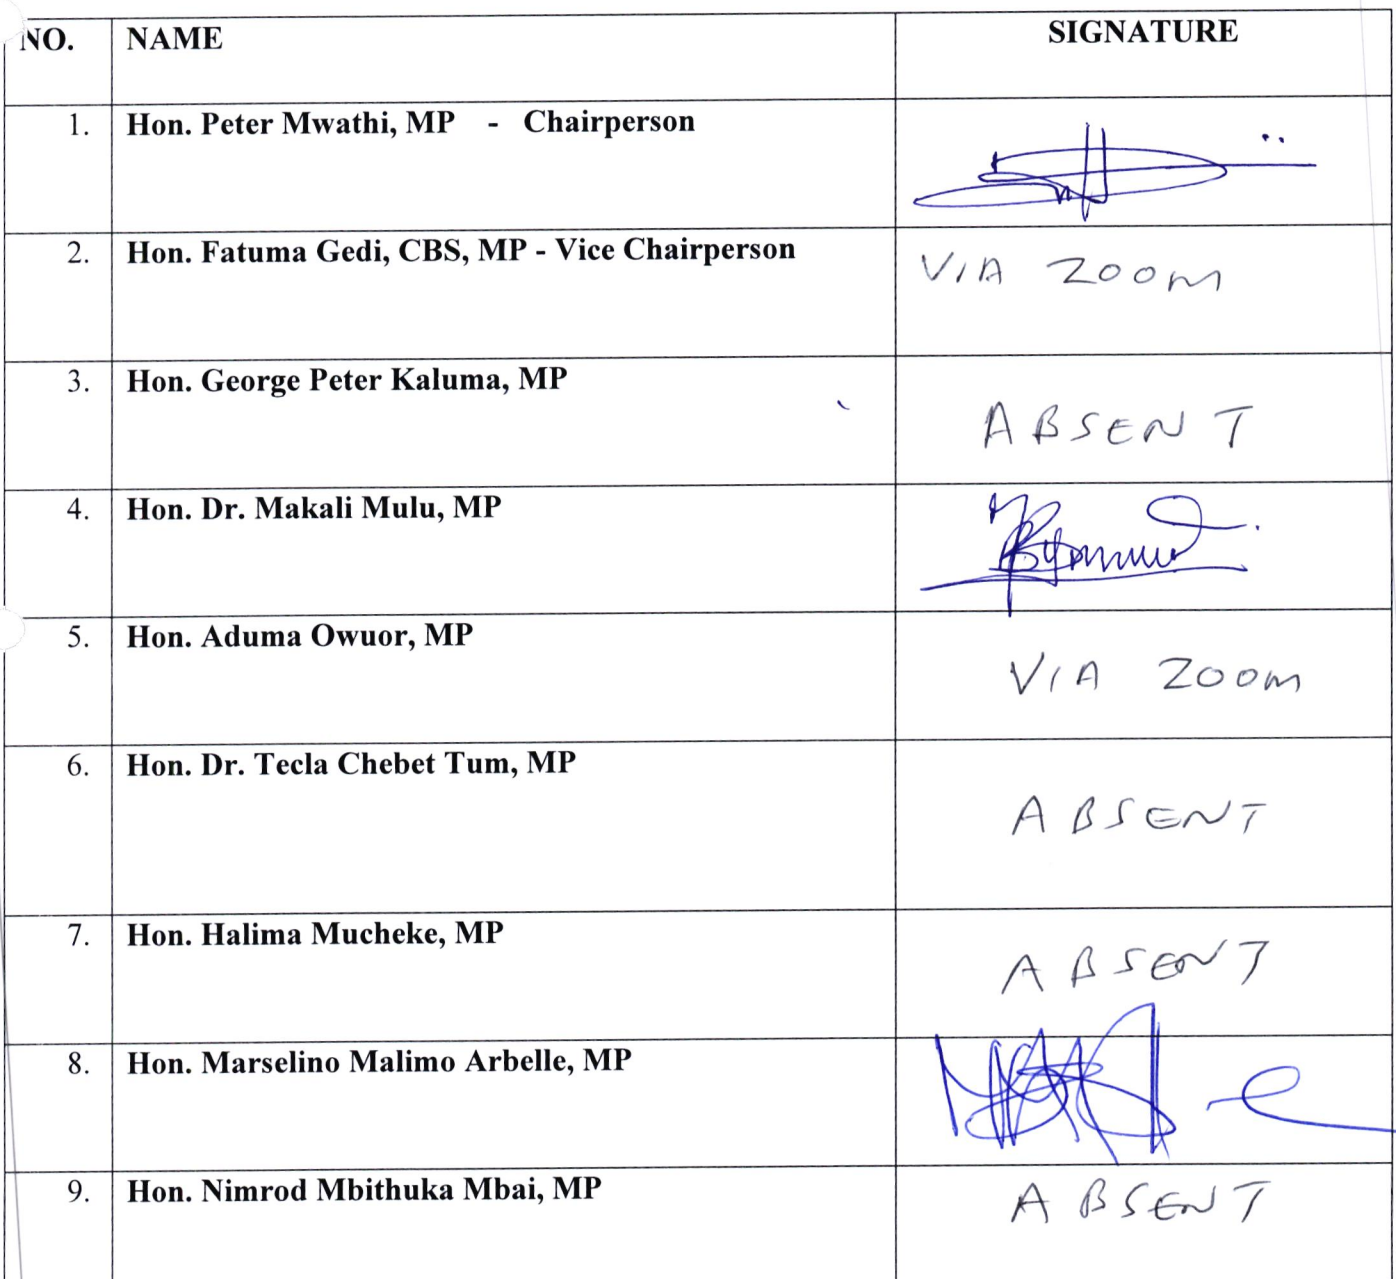 NO. NAME SIGNATURE
1. Hon. Peter Mwathi, MP - Chairperson
2. Hon. Fatuma Gedi, CBS, MP - Vice Chairperson VIA ZOOM
3. Hon. George Peter Kaluma, MP ABSENT
4. Hon. Dr. Makali Mulu, MP
5. Hon. Aduma Owuor, MP VIA ZOOM
6. Hon. Dr. Tecla Chebet Tum, MP ABSENT
7. Hon. Halima Mucheke, MP ABSENT
8. Hon. Marselino Malimo Arbelle, MP
9. Hon. Nimrod Mbithuka Mbai, MP ABSENT